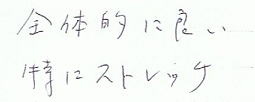 全体的に良い
特にストレッチ